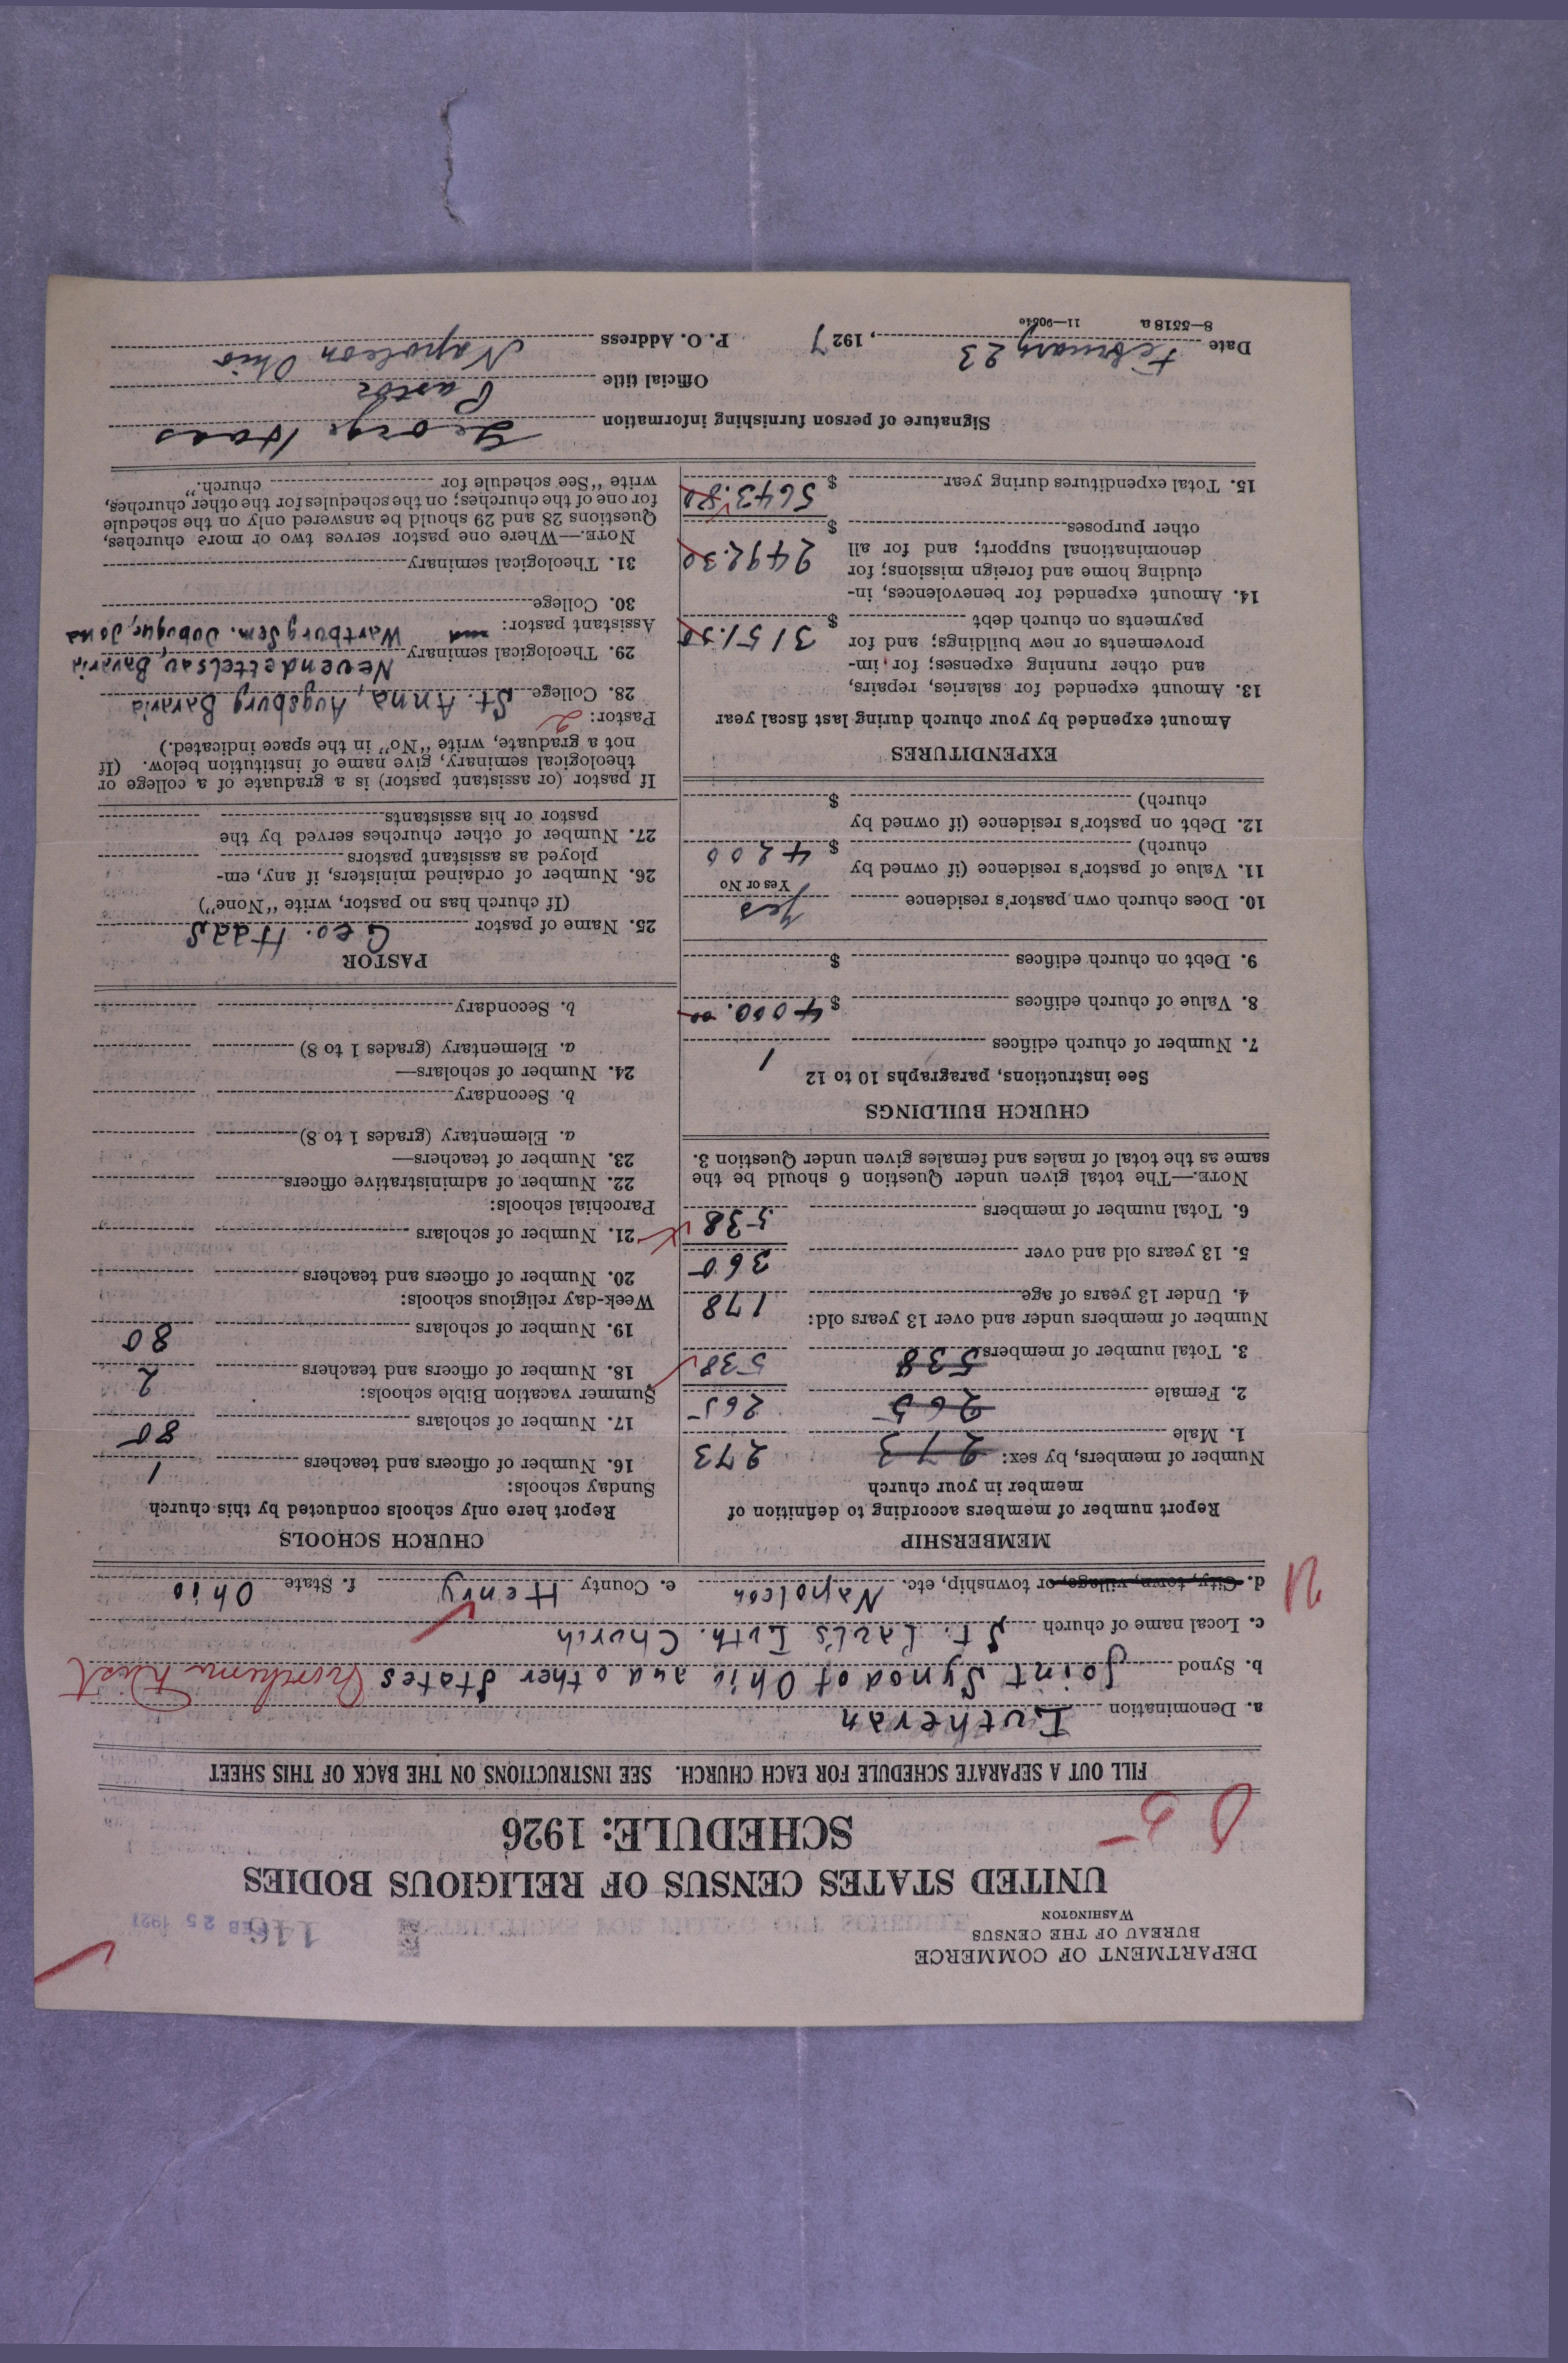 DEPARTMENT OF COMMERCE
BUREAU OF THE CENSUS
WASHINGTON
146
FEB 25 1927
UNITED STATES CENSUS OF RELIGIOUS BODIES
SCHEDULE: 1926
FILL OUT A SEPARATE SCHEDULE FOR EACH CHURCH. SEE INSTRUCTIONS ON THE BACK OF THIS SHEET
a. Denomination Lutheran
b. Synod Joint Synod of Ohio and other States Northern Dist
c. Local name of church St. Paul's Luth. Church
d. City, town, village, or township, etc. Napoleon e. County Henry f. State Ohio
MEMBERSHIP
Report number of members according to definition of
member in your church
Number of members, by sex:
1. Male 273 273
2. Female 265 265
3. Total number of members 538 538
Number of members under and over 13 years old:
4. Under 13 years of age 178
5. 13 years old and over 360
6. Total number of members 538
NOTE.—The total given under Question 6 should be the
same as the total of males and females given under Question 3.
CHURCH BUILDINGS
See instructions, paragraphs 10 to 12
7. Number of church edifices 1
8. Value of church edifices $ 4000.00
9. Debt on church edifices $
10. Does church own pastor's residence Yes
Yes or No
11. Value of pastor's residence (if owned by
church) $ 4200
12. Debt on pastor's residence (if owned by
church) $
EXPENDITURES
Amount expended by your church during last fiscal year
13. Amount expended for salaries, repairs,
and other running expenses; for im-
provements or new buildings; and for
payments on church debt $ 3151.50
14. Amount expended for benevolences, in-
cluding home and foreign missions; for
denominational support; and for all
other purposes $ 2492.30
15. Total expenditures during year $ 5643.80
CHURCH SCHOOLS
Report here only schools conducted by this church
Sunday schools:
16. Number of officers and teachers 1
17. Number of scholars 80
Summer vacation Bible schools:
18. Number of officers and teachers 2
19. Number of scholars 80
Week-day religious schools:
20. Number of officers and teachers
21. Number of scholars
Parochial schools:
22. Number of administrative officers
23. Number of teachers—
a. Elementary (grades 1 to 8)
b. Secondary
24. Number of scholars—
a. Elementary (grades 1 to 8)
b. Secondary
PASTOR
25. Name of pastor Geo. Haas
(If church has no pastor, write "None")
26. Number of ordained ministers, if any, em-
ployed as assistant pastors
27. Number of other churches served by the
pastor or his assistants
If pastor (or assistant pastor) is a graduate of a college or
theological seminary, give name of institution below. (If
not a graduate, write "No" in the space indicated.)
Pastor: 2
28. College St. Anna, Augsburg Bavaria
29. Theological seminary Neuendettelsau, Bavaria
Assistant pastor: and Wartburg Sem. Dubuque, Iowa
30. College
31. Theological seminary
NOTE.—Where one pastor serves two or more churches,
Questions 28 and 29 should be answered only on the schedule
for one of the churches; on the schedules for the other churches,
write "See schedule for church."
Signature of person furnishing information George Haas
Official title Pastor
Date February 23, 1927 P. O. Address Napoleon Ohio
8—5518 a